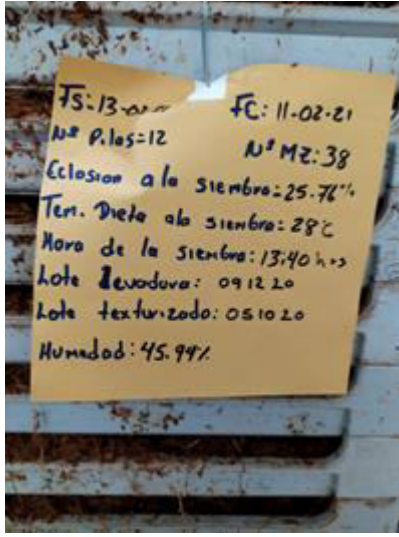 FS: 13-02- FC: 11-02-21
Nº Pilas=12 Nº MZ: 38
Eclosion a la siembra=25.76%
Tem. Dieta ala siembra: 28°C
Hora de la siembra: 13:40 hrs
Lote levadura: 091220
Lote texturizado: 051020
Humedad: 45.94%